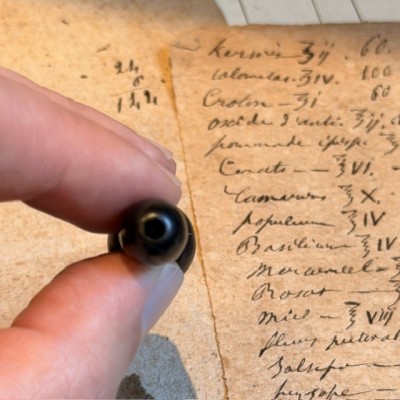 24
6
144
Kermis ʒij . 60.
Calomelas ʒIV. 100
Croton — ʒi 60
oxide d'anti. ʒij.
pommade épisp.
Cerats — ℥VI.
Tamarins ℥X.
populeum ℥IV
Basilicum ℥IV
Rosat
miel — ℥viij
fleurs pectoral
Salsep
hysope —